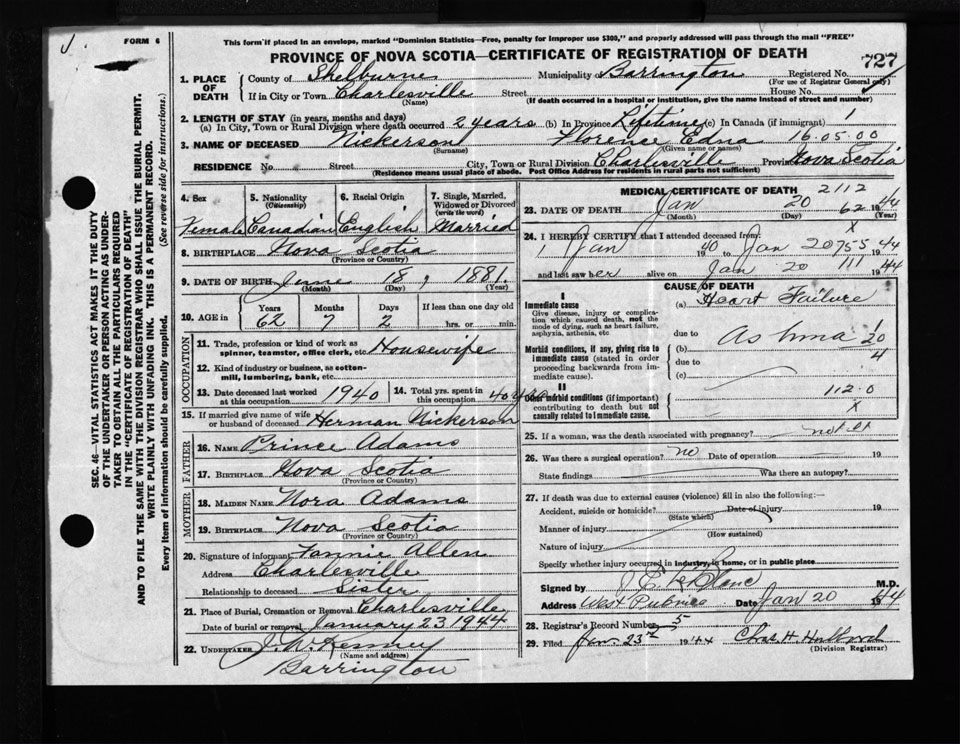 J.
FORM 6
This form if placed in an envelope, marked "Dominion Statistics—Free, penalty for improper use $300," and properly addressed will pass through the mail "FREE"
PROVINCE OF NOVA SCOTIA—CERTIFICATE OF REGISTRATION OF DEATH
727
1. PLACE OF DEATH
County of Shelburne Municipality of Barrington Registered No.
(For use of Registrar General only)
If in City or Town Charlesville Street House No.
(Name) (If death occurred in a hospital or institution, give the name instead of street and number)
2. LENGTH OF STAY (in years, months and days)
(a) In City, Town or Rural Division where death occurred 2 years (b) In Province Lifetime (c) In Canada (if immigrant) 1
3. NAME OF DECEASED Nickerson Florence Edna 16.05.00
(Surname) (Given name or names)
RESIDENCE No. Street City, Town or Rural Division Charlesville Province Nova Scotia
(Residence means usual place of abode. Post Office Address for residents in rural parts not sufficient)
4. Sex
Female
5. Nationality
(Citizenship)
Canadian
6. Racial Origin
English
7. Single, Married, Widowed or Divorced
(write the word)
Married
8. BIRTHPLACE Nova Scotia
(Province or Country)
9. DATE OF BIRTH June 18, 1881.
(Month) (Day) (Year)
10. AGE in
Years Months Days If less than one day old
62 7 2 hrs. or min.
OCCUPATION
11. Trade, profession or kind of work as spinner, teamster, office clerk, etc. Housewife
12. Kind of industry or business, as cotton-mill, lumbering, bank, etc.
13. Date deceased last worked at this occupation 1940
14. Total yrs. spent in this occupation 40 yrs
15. If married give name of wife or husband of deceased Herman Nickerson
FATHER
16. NAME Prince Adams
17. BIRTHPLACE Nova Scotia
(Province or Country)
MOTHER
18. MAIDEN NAME Nora Adams
19. BIRTHPLACE Nova Scotia
(Province or Country)
20. Signature of informant Fannie Allen
Address Charlesville
Relationship to deceased Sister
21. Place of Burial, Cremation or Removal Charlesville
Date of burial or removal January 23 1944
22. UNDERTAKER J. W. Kenney
(Name and address)
Barrington
MEDICAL CERTIFICATE OF DEATH
2112
23. DATE OF DEATH Jan 20 1944
(Month) (Day) (Year)
62
X
24. I HEREBY CERTIFY that I attended deceased from:
1 Jan 1940 to Jan 20 1944
755
and last saw her alive on Jan 20 1944
111
CAUSE OF DEATH
I
Immediate cause
Give disease, injury or complication which caused death, not the mode of dying, such as heart failure, asphyxia, asthenia, etc.
(a) Heart Failure
due to
Morbid conditions, if any, giving rise to immediate cause (stated in order proceeding backwards from immediate cause).
(b) Asthma
due to
(c)
II
Other morbid conditions (if important) contributing to death but not causally related to immediate cause.
112.0
X
25. If a woman, was the death associated with pregnancy?
26. Was there a surgical operation? no Date of operation 19
State findings Was there an autopsy?
27. If death was due to external causes (violence) fill in also the following:—
Accident, suicide or homicide? Date of injury 19
(State which)
Manner of injury
(How sustained)
Nature of injury
Specify whether injury occurred in industry, in home, or in public place
Signed by J. E. LeBlanc M.D.
Address West Pubnico Date Jan 20 1944
28. Registrar's Record Number 5
29. Filed Jan. 23rd 1944 Chas. H.
(Division Registrar)
SEC. 46—VITAL STATISTICS ACT MAKES IT THE DUTY
OF THE UNDERTAKER OR PERSON ACTING AS UNDER-
TAKER TO OBTAIN ALL THE PARTICULARS REQUIRED
IN THE "CERTIFICATE OF REGISTRATION OF DEATH"
AND TO FILE THE SAME WITH THE DIVISION REGISTRAR WHO SHALL ISSUE THE BURIAL PERMIT.
WRITE PLAINLY WITH UNFADING INK. THIS IS A PERMANENT RECORD.
Every item of information should be carefully supplied. (See reverse side for instructions.)